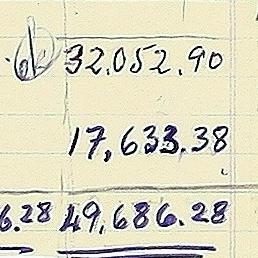 32,052.90
17,633.38
6.28 49,686.28